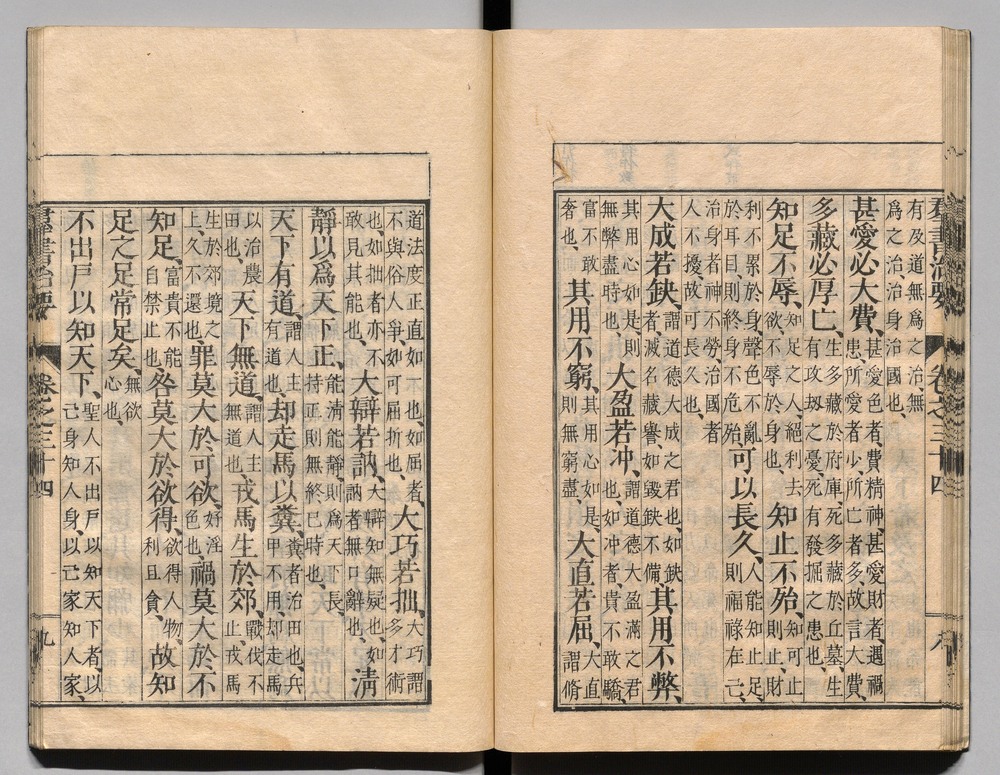 羣書治要 卷之三十四 八
有及道無爲之治、無
爲之治、治身治國也、
甚愛必大費、甚愛色者、費精神、甚愛財者、遇禍
患、所愛者少、所亡者多、故言大費、
多藏必厚亡、生多藏於府庫、死多藏於丘墓、生
有攻刼之憂、死有發掘之患也、
知足不辱、知足之人、絕利去
欲、不辱於身、知止不殆、知可止
則止、財
利不累於身、聲色不亂
於耳目、則終身不危殆、可以長久、人能知止足
則福祿在己、
治身者神不勞、治國者
人不擾、故可長久也、
大成若鈌、謂道德大成之君也、如鈌
者、滅名藏譽、如毀鈌不備、其用不弊、
其用心如是、則
無弊盡時也、大盈若冲、謂道德大盈滿之君
也、如冲者、貴不敢驕、
富不敢
奢也、其用不窮、其用心如是、
則無窮盡、大直若屈、大直
謂脩
道法度正直如一也、如屈者、
不與俗人爭、如可屈折也、大巧若拙、大巧謂
多才術
也、如拙者、亦不
敢見其能也、大辯若訥、大辯知無疑也、如
訥者、無口辭也、清
靜以爲天下正、能清能靜、則爲天下長、
持正則無終已時也、
天下有道、謂人主
有道也、却走馬以糞、糞者治田也、兵
甲不用、却走馬
以治農
田也、天下無道、謂人主
無道也、戎馬生於郊、戰伐不
止、戎馬
生於郊境之
上、久不還也、罪莫大於可欲、好淫
色也、禍莫大於不
知足、富貴不能
自禁止也、咎莫大於欲得、欲得人物、
利且貪、故知
足之足常足矣、無欲
心也、
不出戶以知天下、聖人不出戶以知天下者、以
己身知人身、以己家知人家、
羣書治要 卷之三十四 九